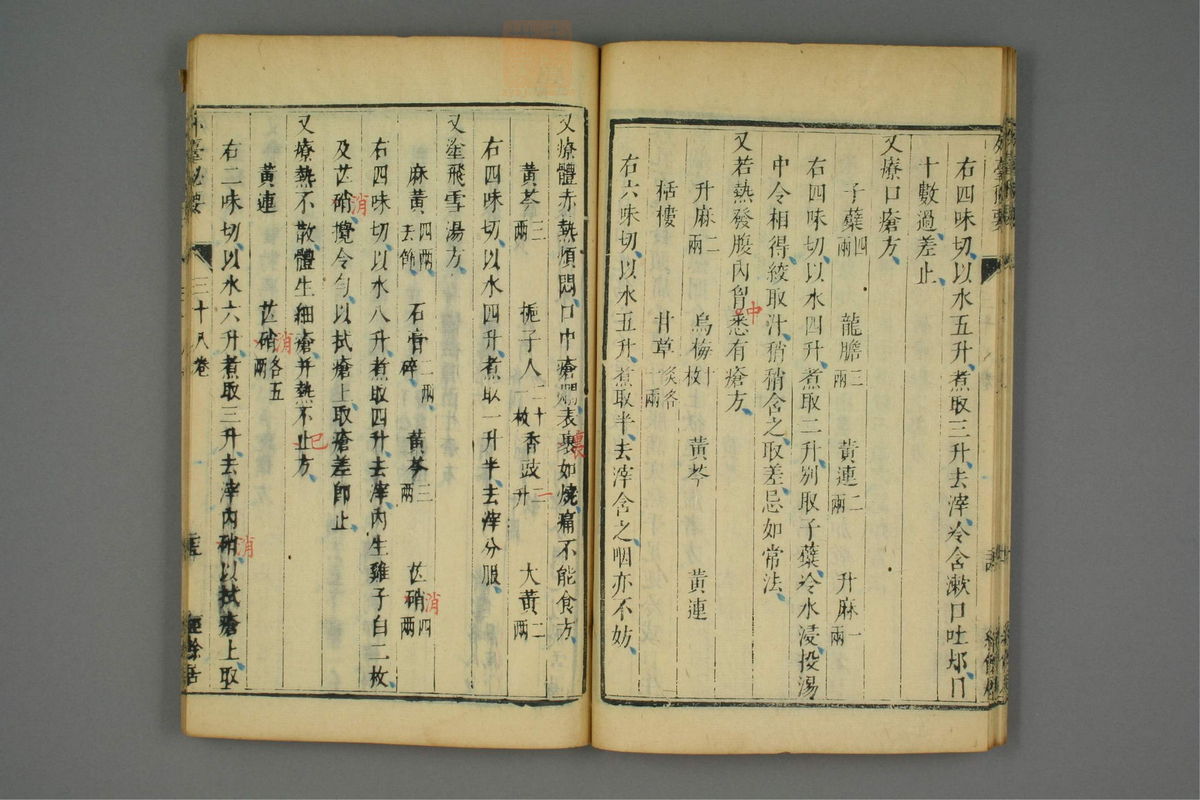 右四味切以水五升煮取三升去滓冷含漱口吐却日
十數過差止
又療口瘡方
子蘗四兩 龍膽三兩 黃連二兩 升麻一兩
右四味切以水四升煮取二升別取子蘗冷水浸投湯
中令相得絞取汁稍稍含之取差忌如常法
又若熱發腹內胷悉有瘡方
中
升麻二兩 烏梅十枚 黃芩 黃連
栝樓 甘草炙各一兩
右六味切以水五升煮取半去滓含之咽亦不妨
又療體赤熱煩悶口中瘡爛表裹如燒痛不能食方
裏
黃芩三兩 梔子人二十枚 香豉二升 大黃二兩
一
右四味切以水四升煮取一升半去滓分服
又塗飛雪湯方
麻黃四兩去節 石膏二兩碎 黃芩三兩 芒硝四兩
消
右四味切以水八升煮取四升去滓內生雞子白二枚
及芒硝攪令勻以拭瘡上取瘡差卽止
消
又療熱不散體生細瘡并熱不止方
已
黃連 芒硝各五兩
消
右二味切以水六升煮取三升去滓內硝以拭瘡上取
消
臺秘要 三十八卷